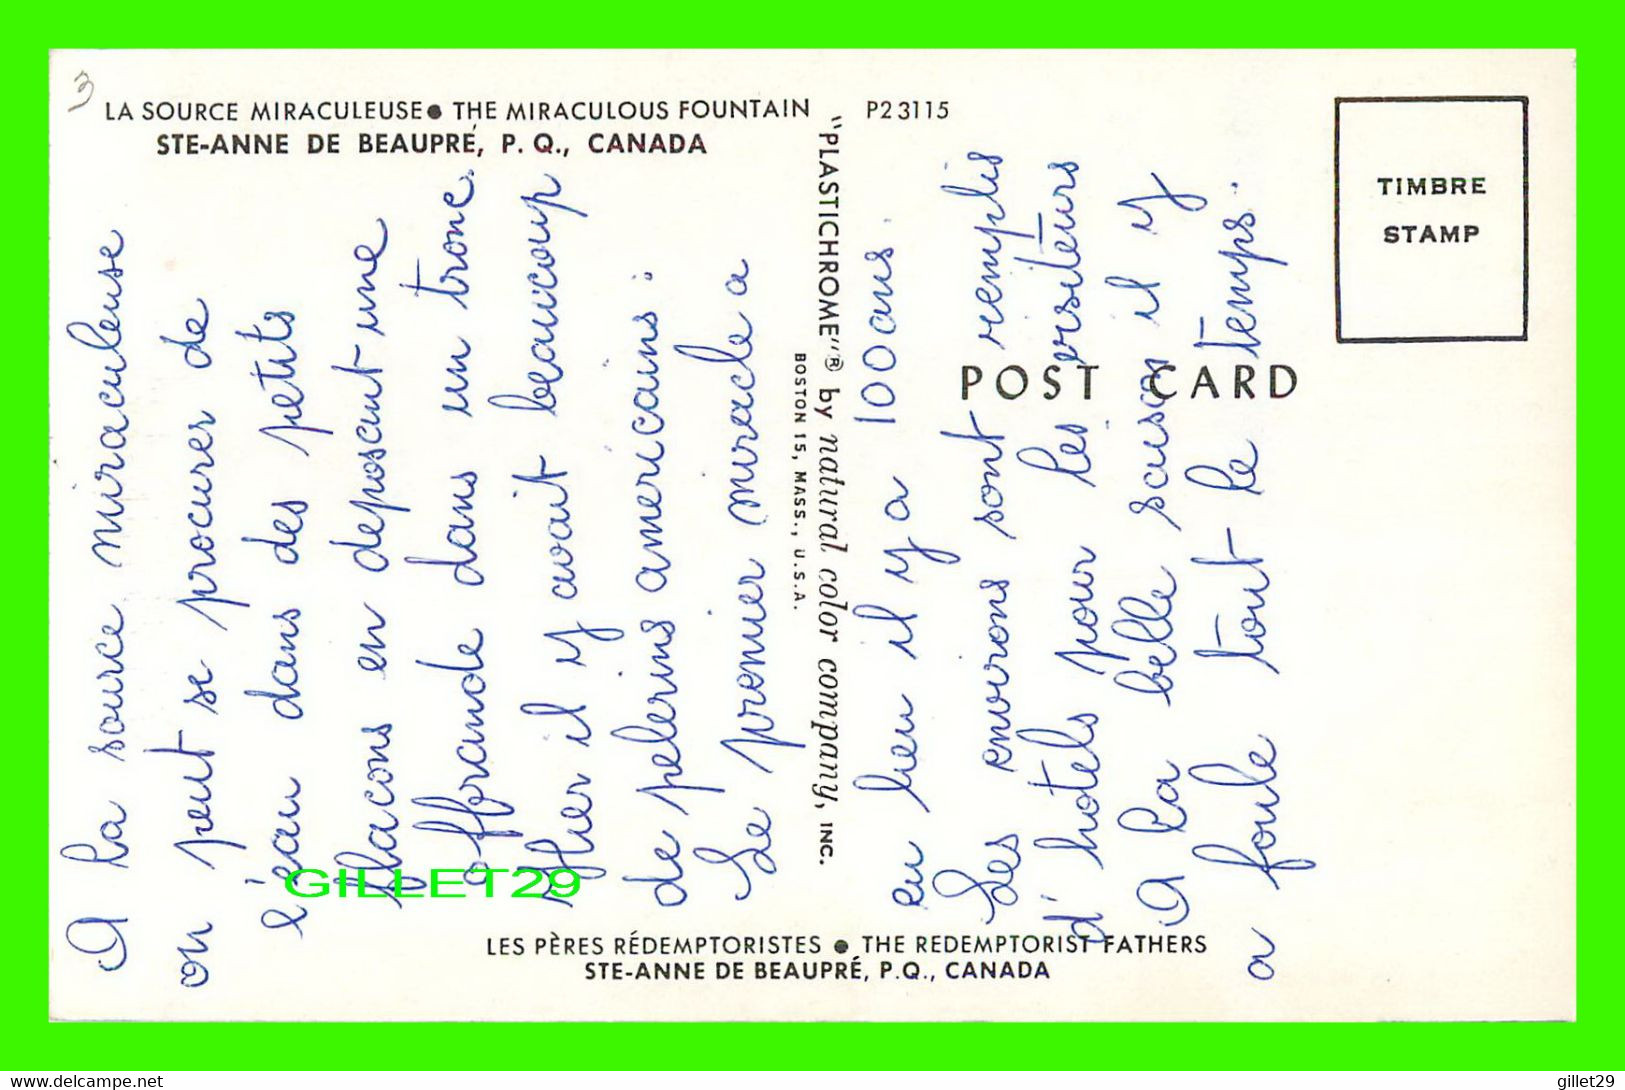 3
LA SOURCE MIRACULEUSE ● THE MIRACULOUS FOUNTAIN
STE-ANNE DE BEAUPRÉ, P. Q., CANADA
P23115
TIMBRE
STAMP
POST CARD
"PLASTICHROME"® by natural color company, INC.
BOSTON 15, MASS., U.S.A.
A la source miraculeuse
on peut se procurer de
l'eau dans des petits
flacons en deposant une
offrande dans un tronc.
Hier il y avait beaucoup
de pelerins americains.
Le premier miracle a
eu lieu il y a 100 ans.
Les environs sont remplis
d'hotels pour les visiteurs
A la belle saison il y
a foule tout le temps.
LES PÈRES RÉDEMPTORISTES ● THE REDEMPTORIST FATHERS
STE-ANNE DE BEAUPRÉ, P.Q., CANADA
GILLET29
delcampe.net
gillet29